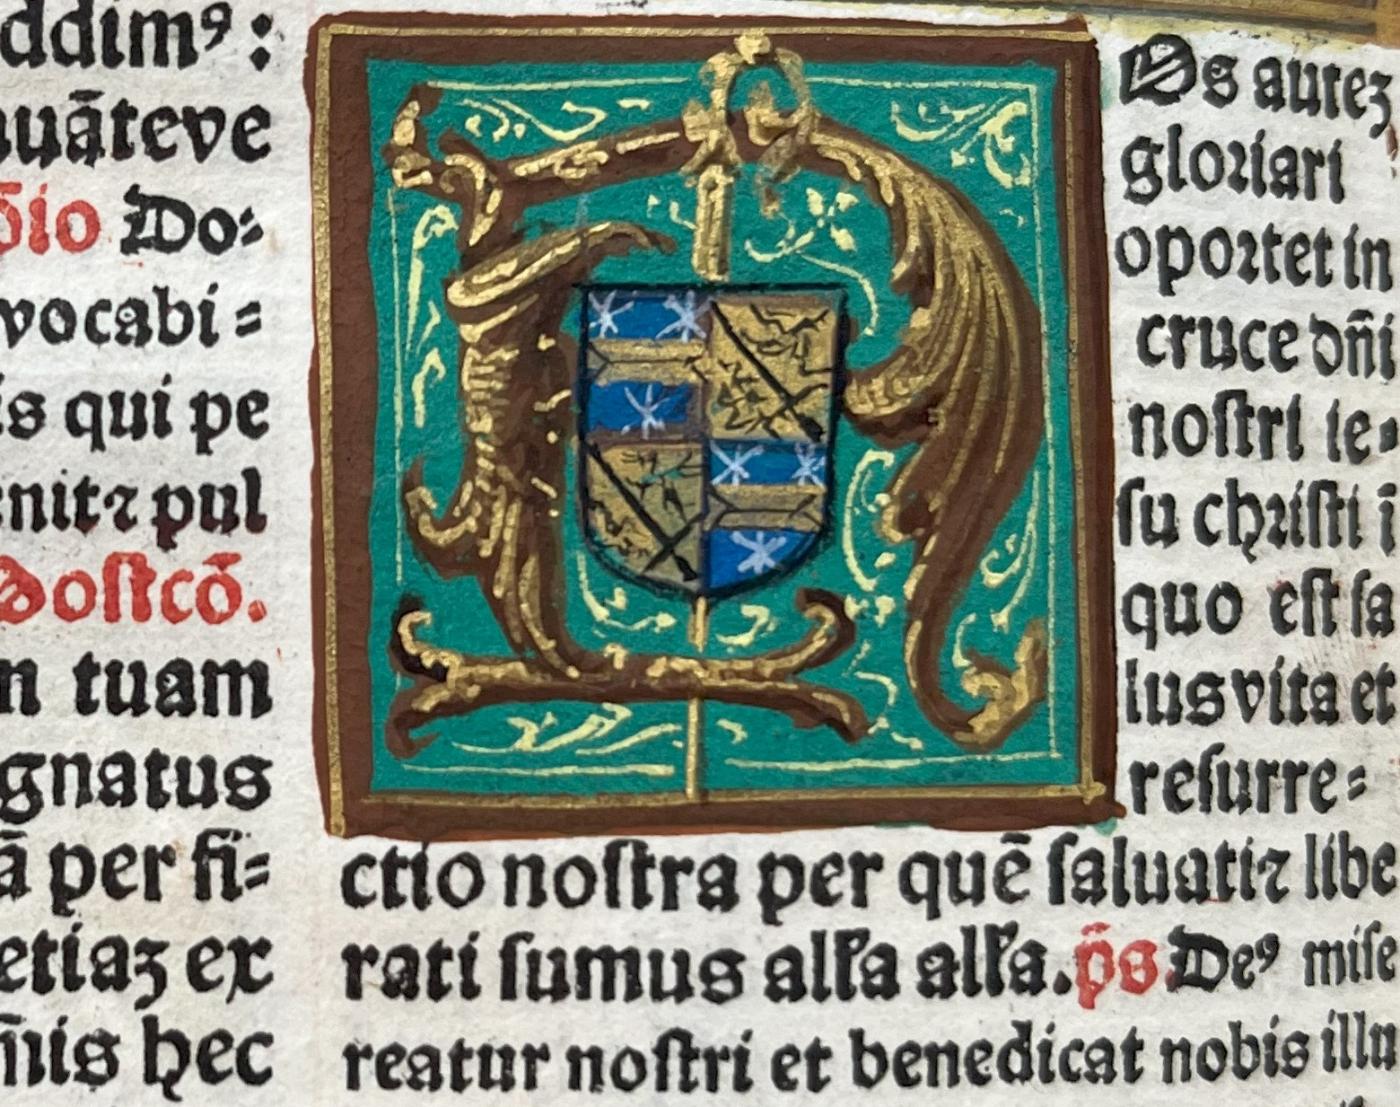 ddimꝰ :
uāteve
ōio Do⸗
vocabi⸗
is qui pe
nitꝛ pul
Poſtcō.
n tuam
gnatus
ā per fi⸗
etiaꝫ ex
m̄is hec
Os auteꝫ
gloꝛiari
opoꝛtet in
cruce dn̄i
noſtri ie⸗
ſu chꝛiſti ī
quo eſt ſa
lus vita et
reſurre⸗
ctio noſtra per quē ſaluatiꝛ libe
rati ſumus alľa alľa. p̄s. Deꝰ miſe
reatur noſtri et benedicat nobis illu